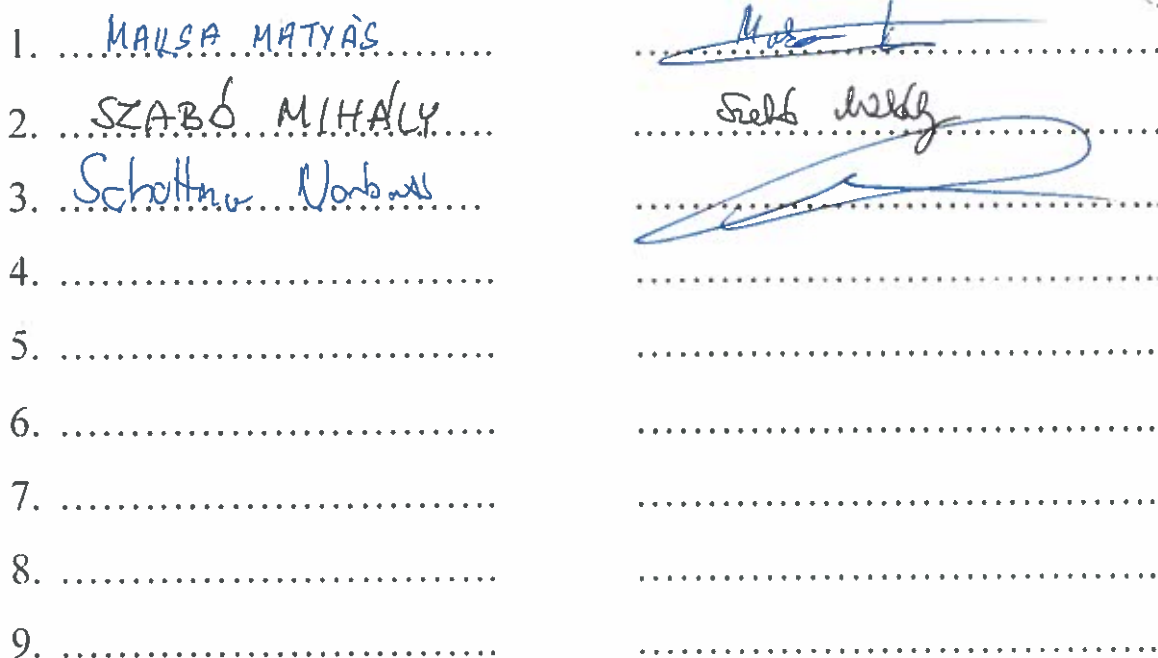 1. MAKSA MATYÁS
2. SZABÓ MIHÁLY Szabó Mihály
3. Schottner Norbert
4.
5.
6.
7.
8.
9.